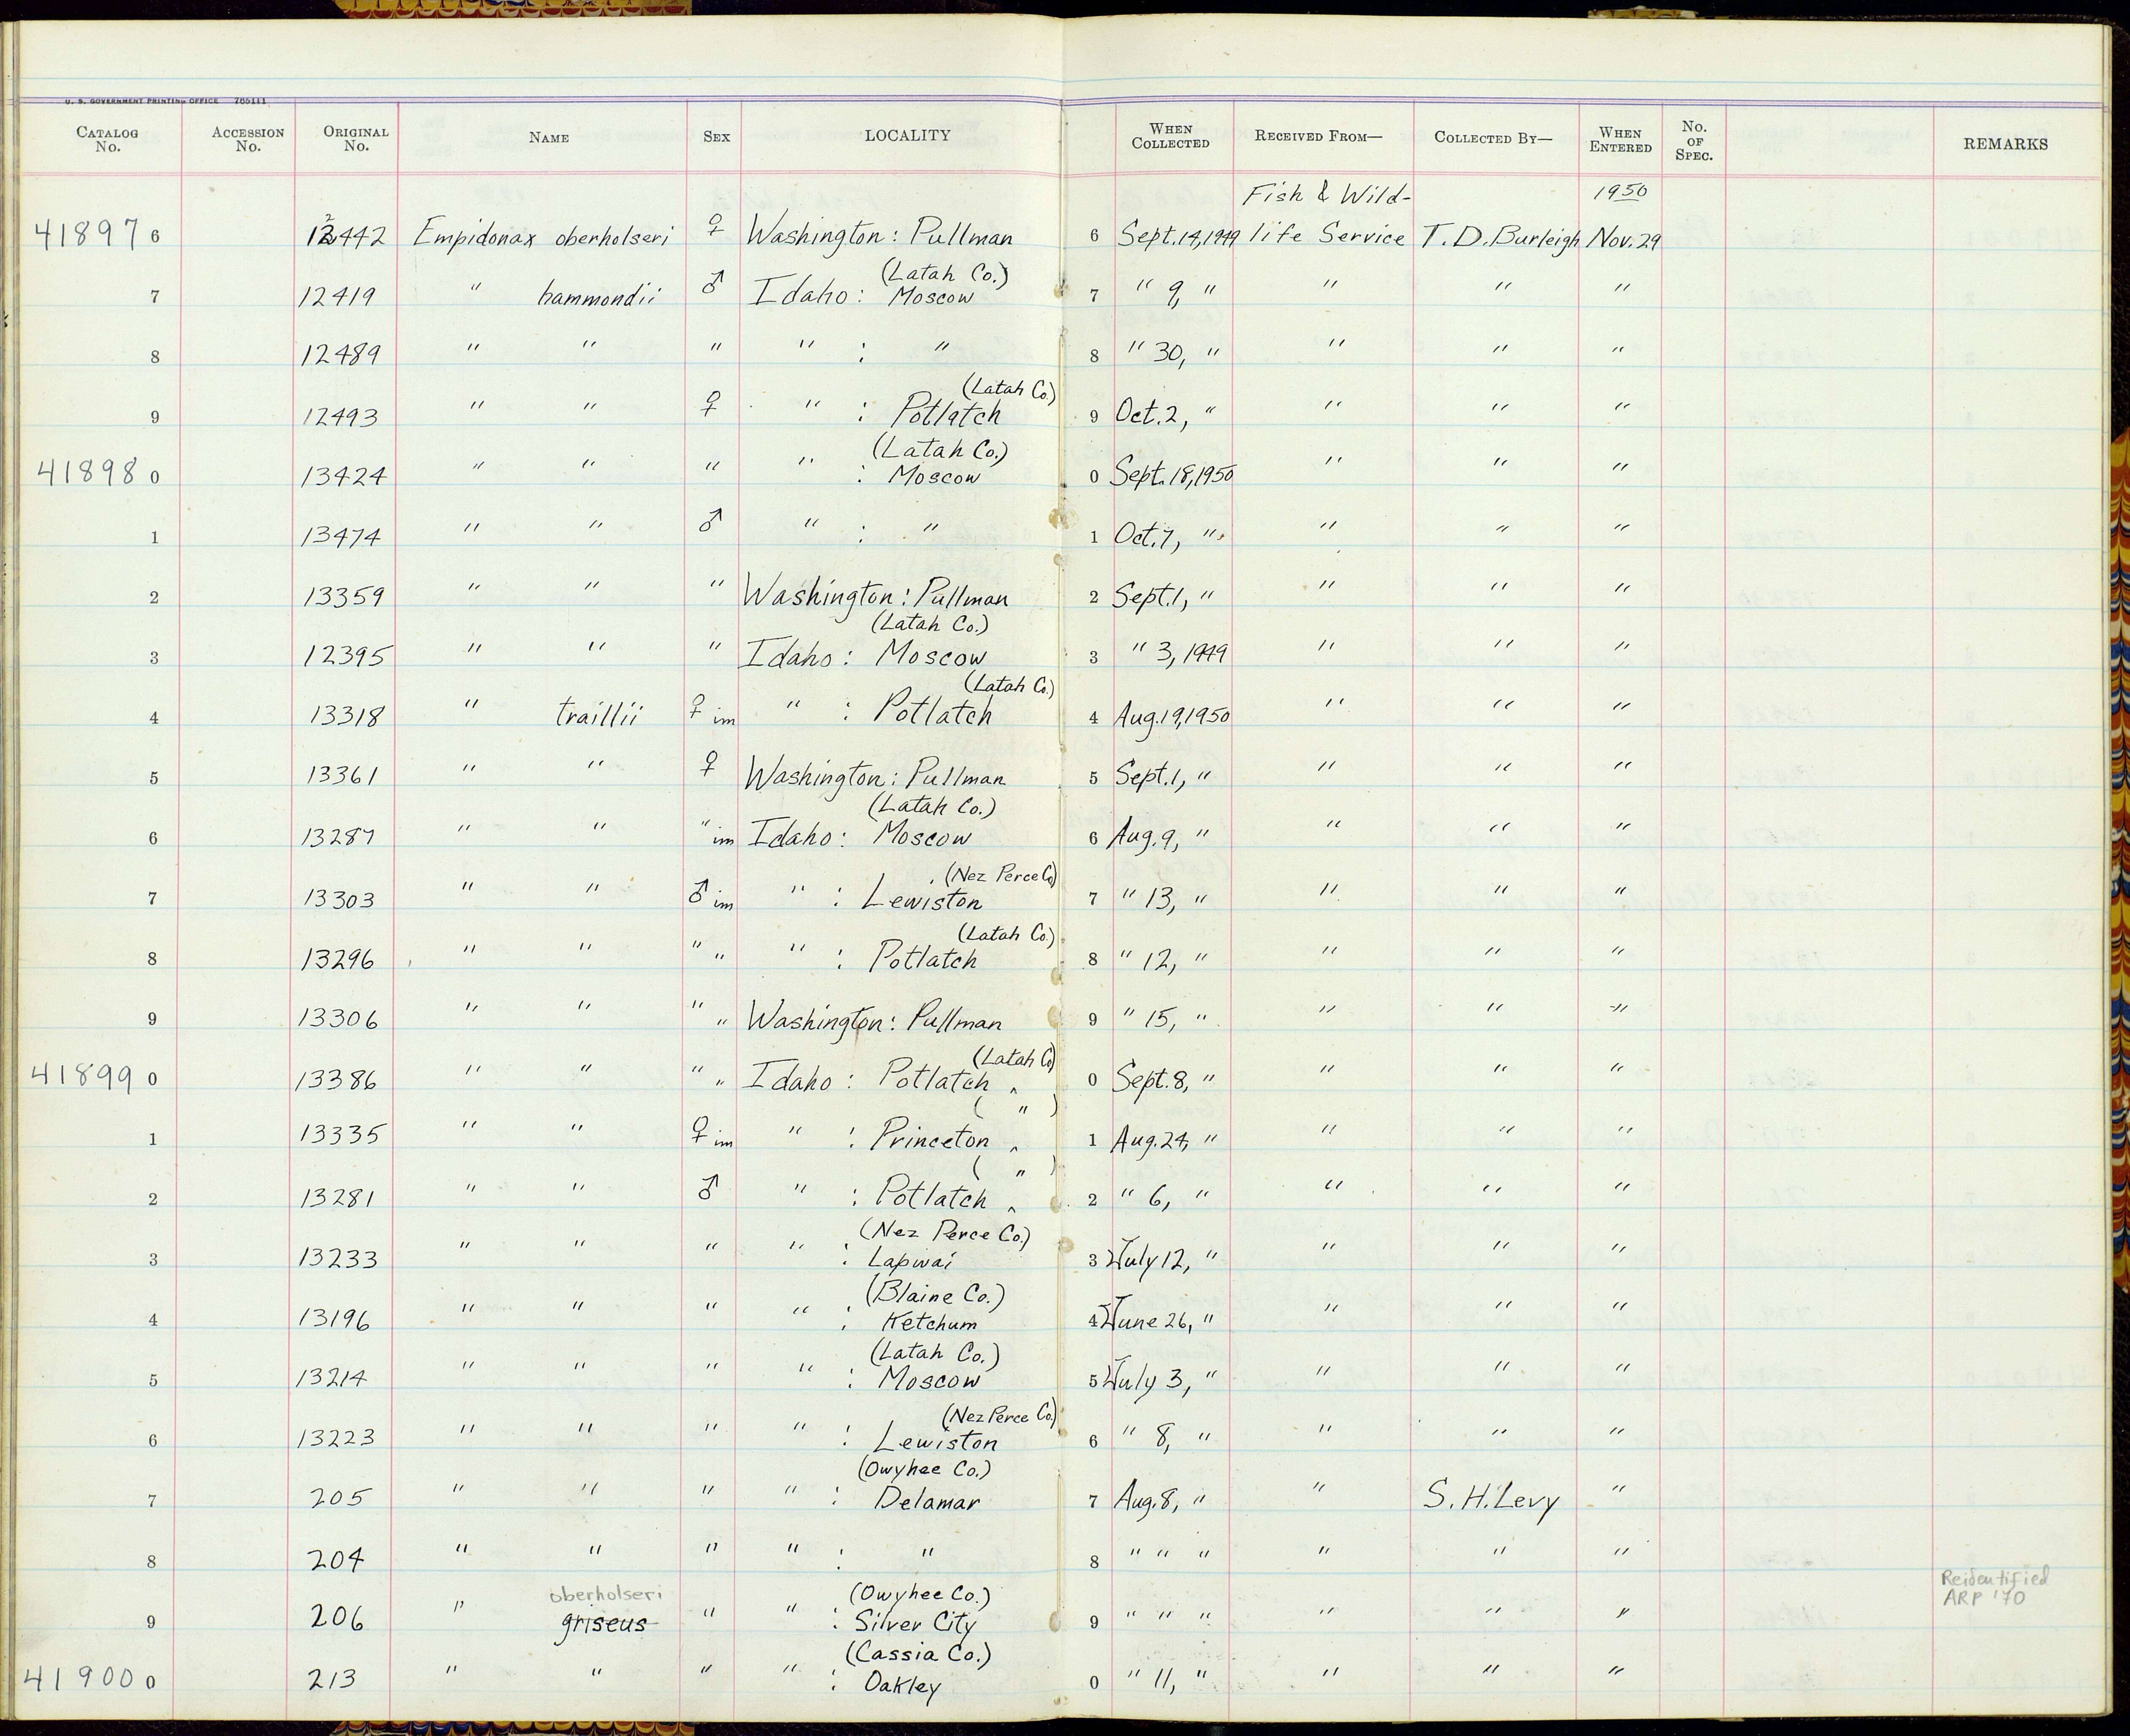 U. S. GOVERNMENT PRINTING OFFICE 765111
CATALOG No. ACCESSION No. ORIGINAL No. NAME SEX LOCALITY WHEN COLLECTED RECEIVED FROM— COLLECTED BY— WHEN ENTERED No. OF SPEC. REMARKS
Fish & Wild- 1950
41897 6 12442 Empidonax oberholseri ♀ Washington: Pullman 6 Sept. 14, 1949 life Service T. D. Burleigh Nov. 29
(Latah Co.)
7 12419 " hammondii ♂ Idaho: Moscow 7 " 9, " " " "
8 12489 " " " " : " 8 " 30, " " " "
(Latah Co.)
9 12493 " " ♀ " : Potlatch 9 Oct. 2, " " " "
(Latah Co.)
41898 0 13424 " " " " : Moscow 0 Sept. 18, 1950 " " "
1 13474 " " ♂ " : " 1 Oct. 7, " " " "
2 13359 " " " Washington: Pullman 2 Sept. 1, " " " "
(Latah Co.)
3 12395 " " " Idaho: Moscow 3 " 3, 1949 " " "
(Latah Co.)
4 13318 " traillii ♀ im " : Potlatch 4 Aug. 19, 1950 " " "
5 13361 " " ♀ Washington: Pullman 5 Sept. 1, " " " "
(Latah Co.)
6 13287 " " " im Idaho: Moscow 6 Aug. 9, " " " "
(Nez Perce Co)
7 13303 " " ♂ im " : Lewiston 7 " 13, " " " "
(Latah Co.)
8 13296 " " " " " : Potlatch 8 " 12, " " " "
9 13306 " " " " Washington: Pullman 9 " 15, " " " "
(Latah Co)
41899 0 13386 " " " " Idaho: Potlatch ^ 0 Sept. 8, " " " "
( " )
1 13335 " " ♀ im " : Princeton ^ 1 Aug. 24, " " " "
( " )
2 13281 " " ♂ " : Potlatch ^ 2 " 6, " " " "
(Nez Perce Co.)
3 13233 " " " " : Lapwai 3 July 12, " " " "
(Blaine Co.)
4 13196 " " " " : Ketchum 4 June 26, " " " "
(Latah Co.)
5 13214 " " " " : Moscow 5 July 3, " " " "
(Nez Perce Co.)
6 13223 " " " " : Lewiston 6 " 8, " " " "
(Owyhee Co.)
7 205 " " " " : Delamar 7 Aug. 8, " " S. H. Levy "
8 204 " " " " : " 8 " " " " " "
oberholseri (Owyhee Co.) Reidentified
ARP '70
9 206 " griseus " " : Silver City 9 " " " " " "
(Cassia Co.)
41900 0 213 " " " " : Oakley 0 " 11, " " " "